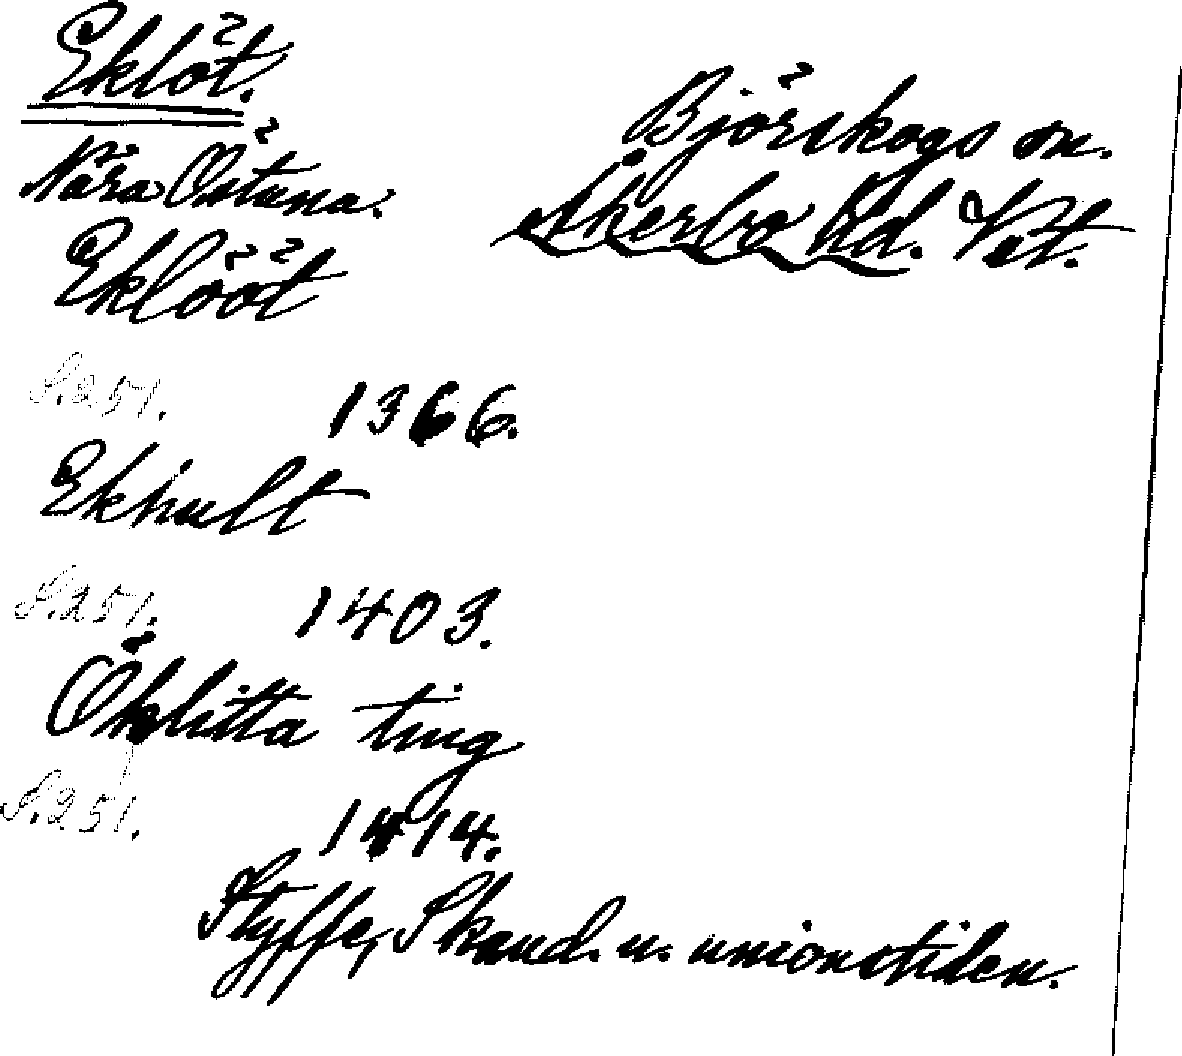 Eklöt.
Björskogs sn.
Nära Östuna.
Åkerbo hd. Vstm.
Eklööt
S. 251. 1366.
Ekhult
S. 251. 1403.
Öklitta ting
S. 251. 1414.
Styffe, Skand. u. unionstiden.